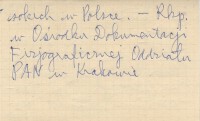 wskich w Polsce. — Rkp.
w Ośrodku Dokumentacji
Fizjograficznej Oddziału
PAN w Krakowie